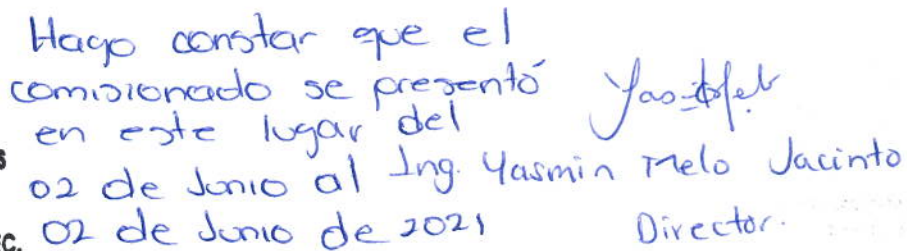 Hago constar que el
comisionado se presentó
en este lugar del
02 de Junio al
02 de Junio de 2021
Ing. Yasmin Melo Jacinto
Director.
C.